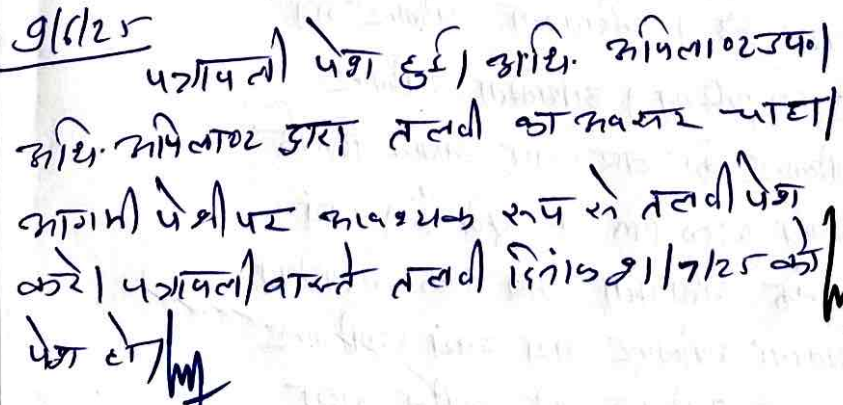 9/6/25
पत्रावली पेश हुई। अधि. अपिलाण्ट उप०।
अधि. अपिलाण्ट द्वारा तलवी का अवसर चाहा।
आगामी पेशी पर आवश्यक रूप से तलवी पेश
करे। पत्रावली वास्ते तलवी दिनांक 21/7/25 को
पेश हो।